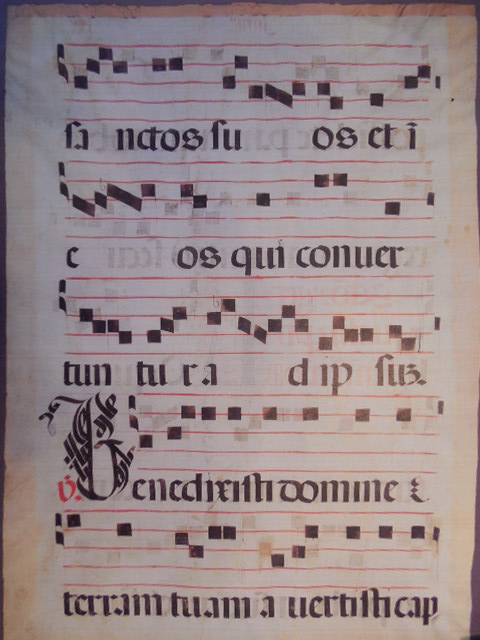 sa nctos su os et ī
e os qui conuer
tun tu r a d ip suz.
℣. Benedixisti domine t
terram tuam a uertisti cap